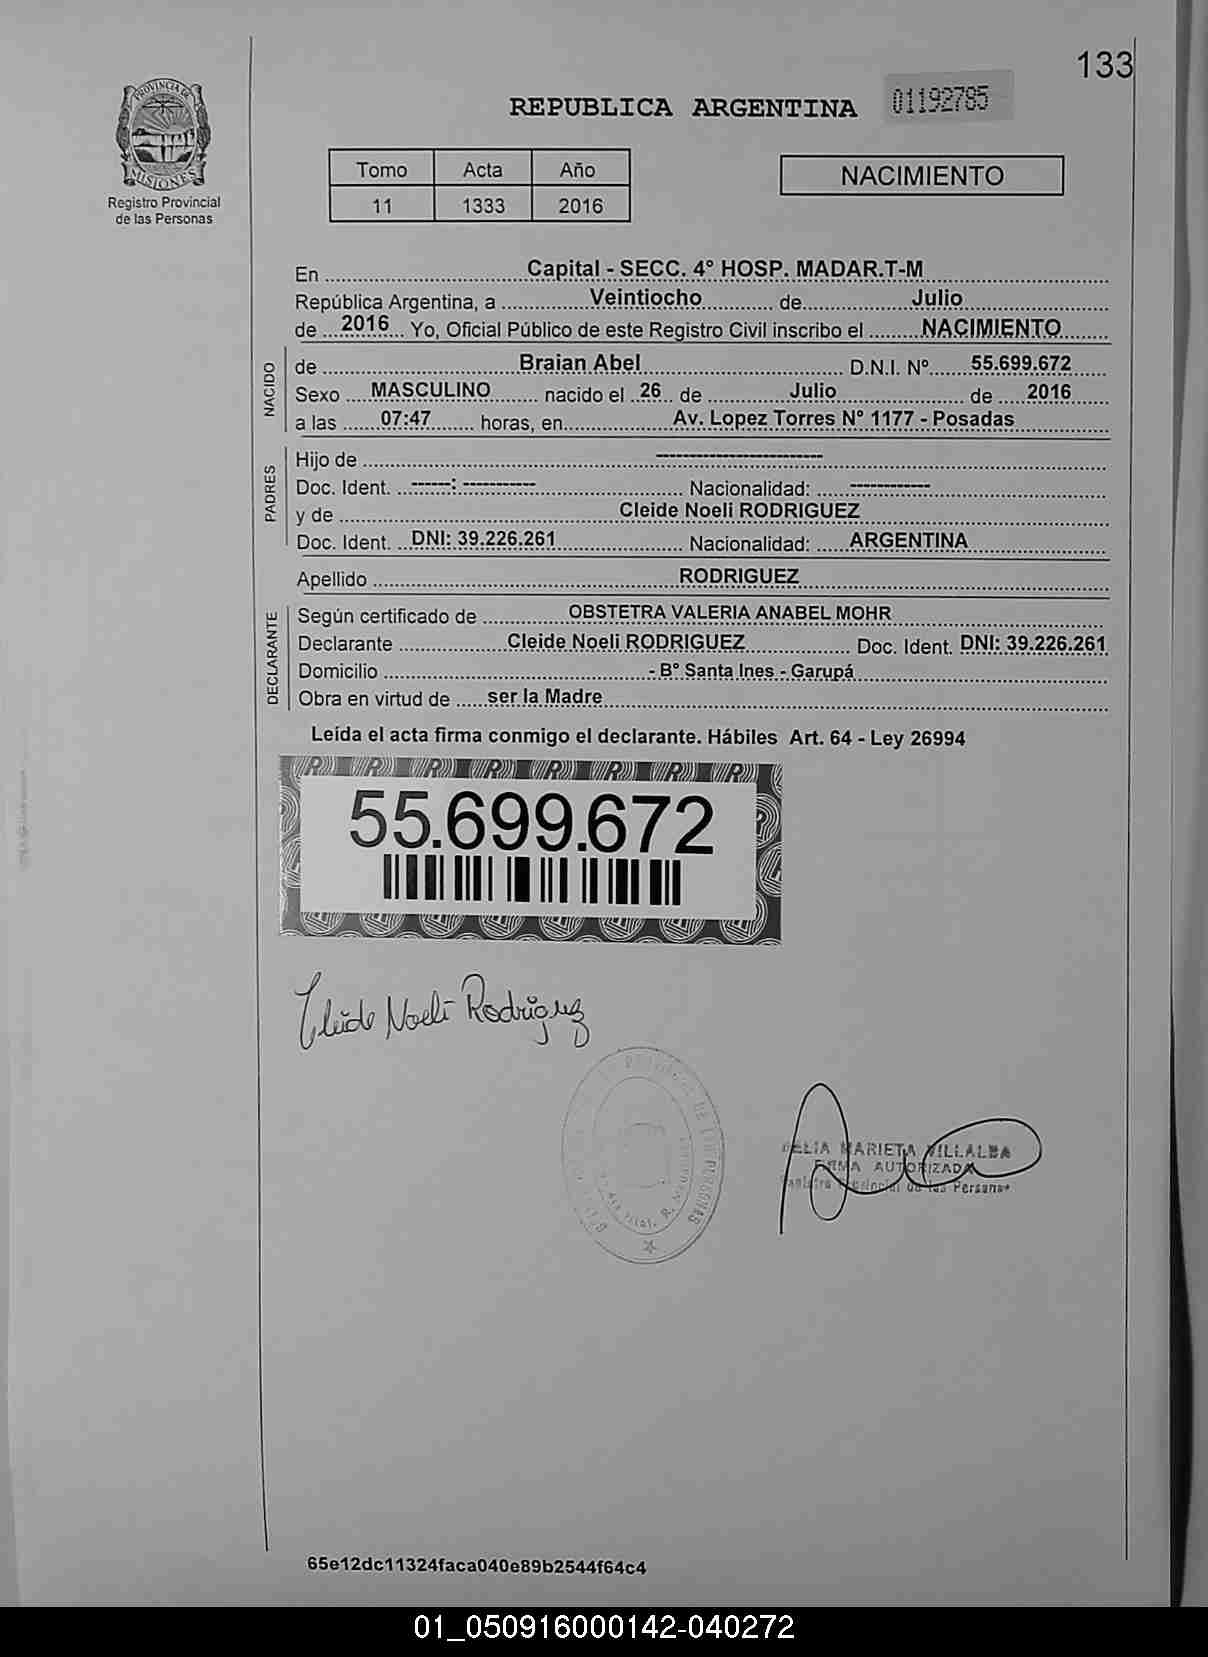 133
REPUBLICA ARGENTINA 01192785
PROVINCIA DE
MISIONES
Registro Provincial
de las Personas
Tomo Acta Año
11 1333 2016
NACIMIENTO
En Capital - SECC. 4° HOSP. MADAR.T-M
República Argentina, a Veintiocho de Julio
de 2016 Yo, Oficial Público de este Registro Civil inscribo el NACIMIENTO
NACIDO
de Braian Abel D.N.I. Nº 55.699.672
Sexo MASCULINO nacido el 26 de Julio de 2016
a las 07:47 horas, en Av. Lopez Torres N° 1177 - Posadas
PADRES
Hijo de -------------------------
Doc. Ident. ------: ----------- Nacionalidad: ------------
y de Cleide Noeli RODRIGUEZ
Doc. Ident. DNI: 39.226.261 Nacionalidad: ARGENTINA
Apellido RODRIGUEZ
DECLARANTE
Según certificado de OBSTETRA VALERIA ANABEL MOHR
Declarante Cleide Noeli RODRIGUEZ Doc. Ident. DNI: 39.226.261
Domicilio - B° Santa Ines - Garupá
Obra en virtud de ser la Madre
Leída el acta firma conmigo el declarante. Hábiles Art. 64 - Ley 26994
55.699.672
Cleide Noeli Rodriguez
MARIETA VILLALBA
FIRMA AUTORIZADA
Provincial de las Personas
65e12dc11324faca040e89b2544f64c4
01_050916000142-040272